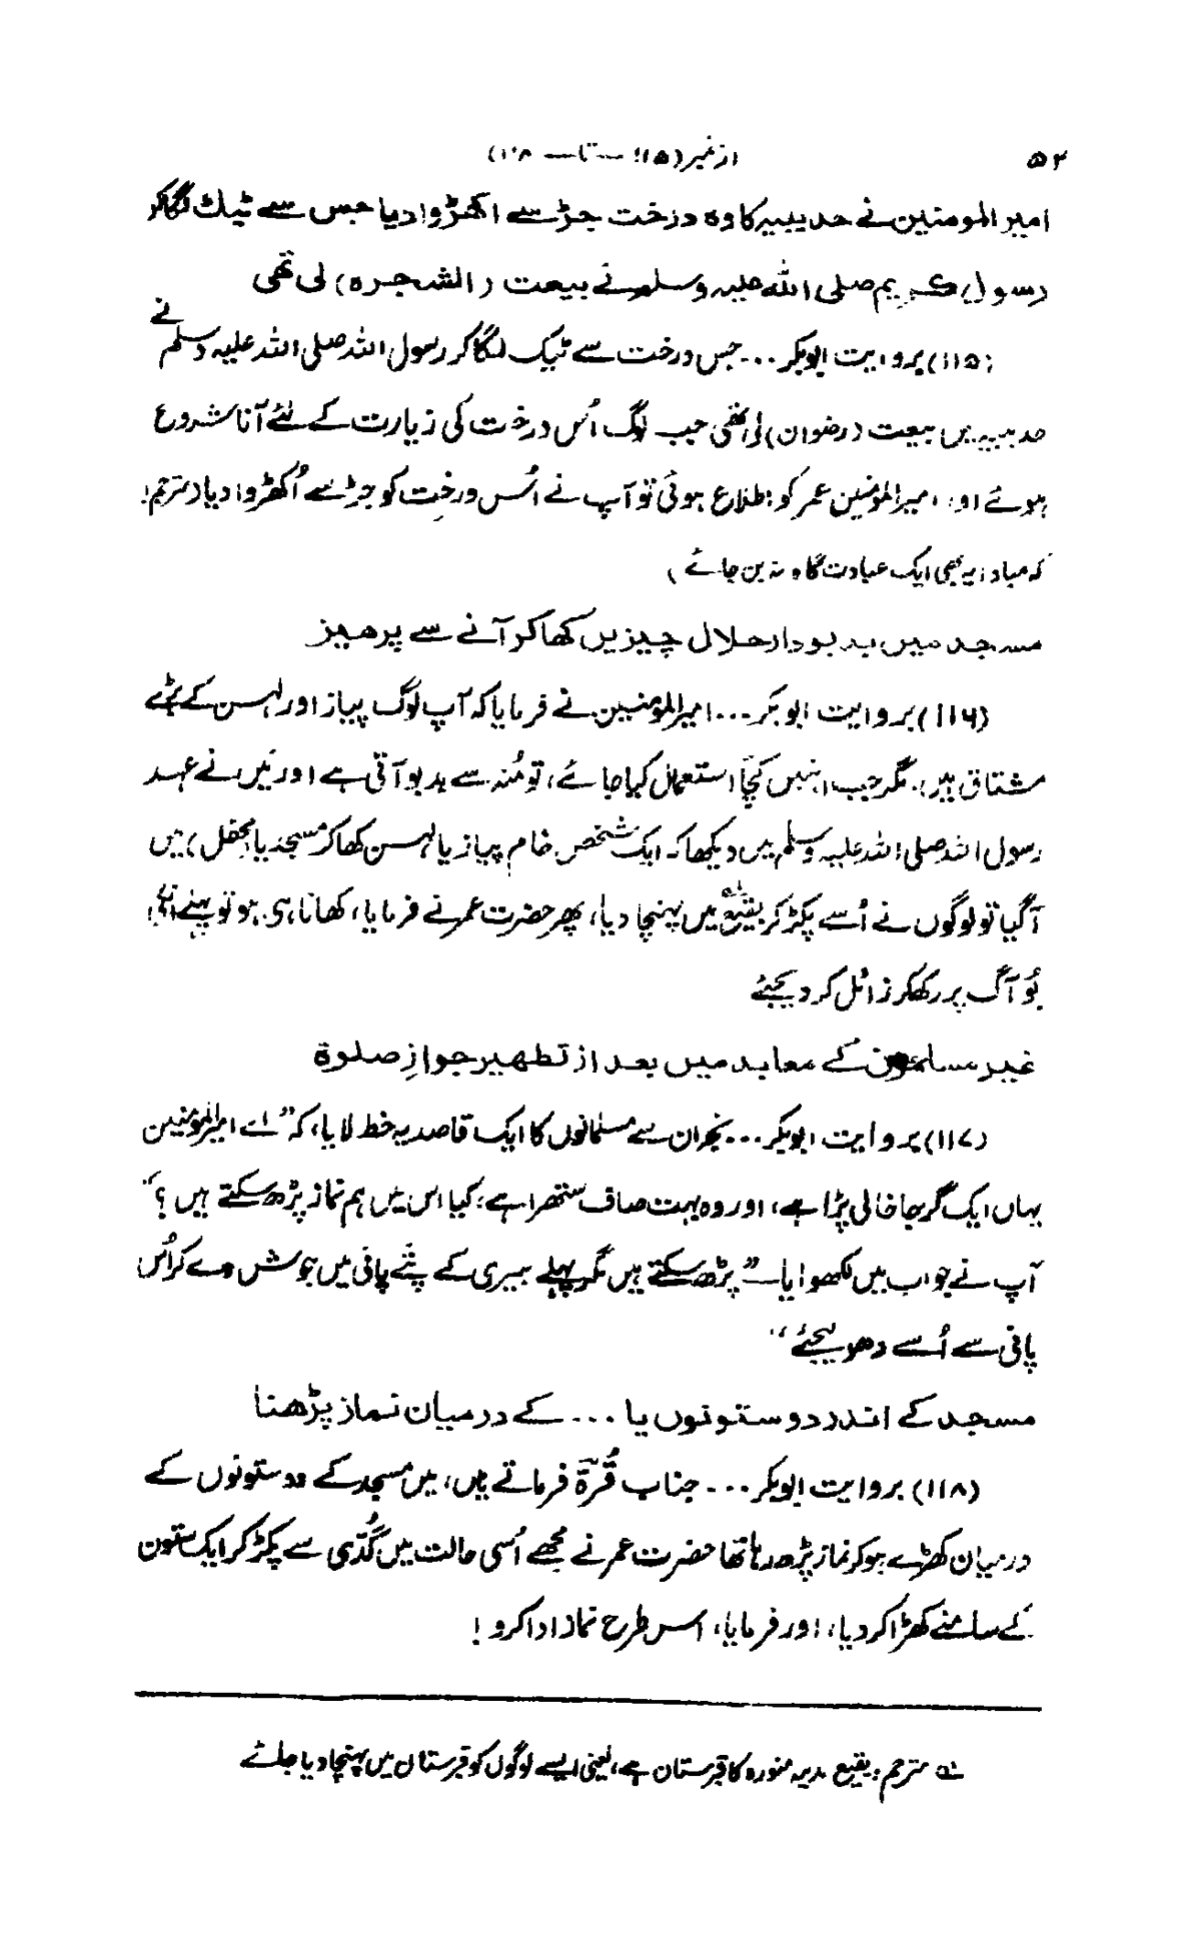 ۵۲
از نمبر (۱۱۵ — تا — ۱۱۸)
امیر المومنین نے حدیبیہ کا وہ درخت جڑ سے اکھڑوا دیا جس سے ٹیک لگا کر
رسول کریم صلی اللہ علیہ وسلم نے بیعت (الشجرہ) لی تھی
(۱۱۵) بروایت ابوبکر ... جس درخت سے ٹیک لگا کر رسول اللہ صلی اللہ علیہ وسلم نے
حدیبیہ میں بیعت (رضوان) لی تھی جب لوگ اُس درخت کی زیارت کے لئے آنا شروع
ہوئے اور امیر المؤمنین عمر کو اطلاع ہوئی تو آپ نے اُس درخت کو جڑ سے اُکھڑوا دیا (مترجم:
کہ مبادا یہ بھی ایک عبادت گاہ نہ بن جائے)
مسجد میں بدبودار حلال چیزیں کھا کر آنے سے پرھیز
(۱۱۶) بروایت ابوبکر ... امیر المومنین نے فرمایا کہ آپ لوگ پیاز اور لہسن کے بڑے
مشتاق ہیں، مگر جب انہیں کچّا استعمال کیا جائے، تو مُنہ سے بدبو آتی ہے اور میں نے عہد
رسول اللہ صلی اللہ علیہ وسلم میں دیکھا کہ ایک شخص خام پیاز یا لہسن کھا کر مسجد یا (محفل) میں
آگیا تو لوگوں نے اُسے پکڑ کر بقیع میں پہنچا دیا، پھر حضرت عمر نے فرمایا، کھانا ہی ہو تو پہلے
بُو آگ پر رکھکر زائل کر دیجئے
غیر مسلموں کے معابد میں بعد از تطھیر جوازِ صلوۃ
(۱۱۷) بروایت ابوبکر ... نجران سے مسلمانوں کا ایک قاصد یہ خط لایا، کہ ”اے امیر المؤمنین
یہاں ایک گرجا خالی پڑا ہے، اور وہ بہت صاف ستھرا ہے؛ کیا اس میں ہم نماز پڑھ سکتے ہیں؟“
آپ نے جواب میں لکھوایا — ”پڑھ سکتے ہیں مگر پہلے بیری کے پتّے پانی میں جوش دے کر اُس
پانی سے اُسے دھو لیجئے“
مسجد کے اندر دو ستونوں یا ... کے درمیان نماز پڑھنا
(۱۱۸) بروایت ابوبکر ... جناب قُرّۃ فرماتے ہیں، میں مسجد کے دو ستونوں کے
درمیان کھڑے ہو کر نماز پڑھ رہا تھا حضرت عمر نے مجھے اُسی حالت میں گُدّی سے پکڑ کر ایک ستون
کے سامنے کھڑا کر دیا، اور فرمایا، اس طرح نماز ادا کرو!
مترجم: بقیع مدینہ منورہ کا قبرستان ہے، یعنی ایسے لوگوں کو قبرستان میں پہنچا دیا جائے